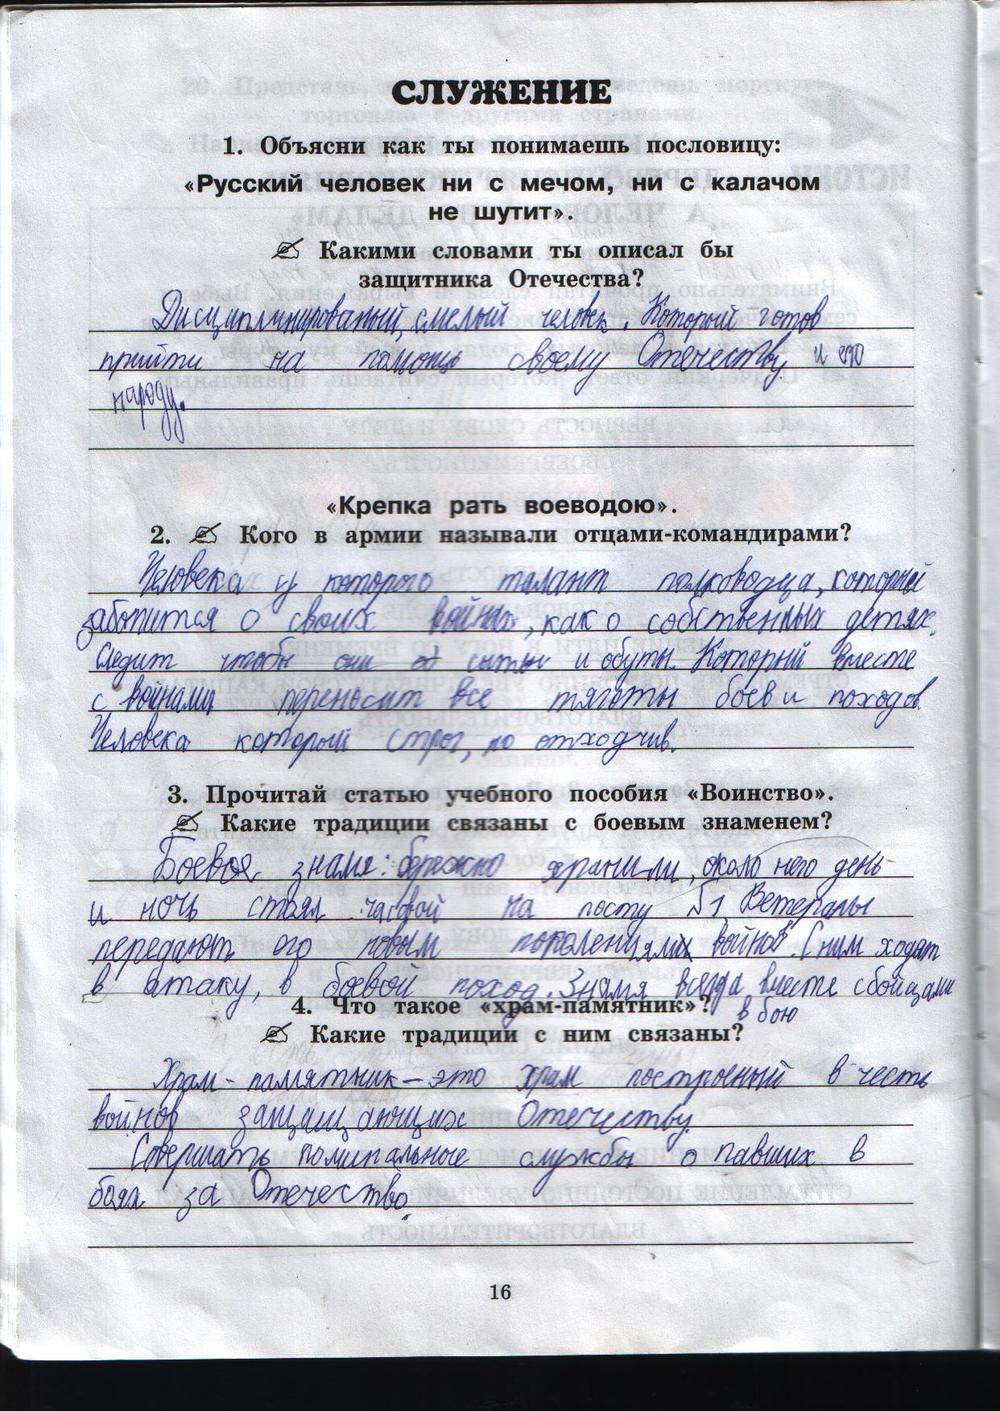 СЛУЖЕНИЕ
1. Объясни как ты понимаешь пословицу:
«Русский человек ни с мечом, ни с калачом
не шутит».
Какими словами ты описал бы
защитника Отечества?
Дисциплинированый, смелый человек. Который готов
прийти на помощь своему Отечеству и его
народу.
«Крепка рать воеводою».
2. Кого в армии называли отцами-командирами?
Человека у которого талант полководца, который
заботится о своих войнах, как о собственных детях.
Следит чтобы они сыты и обуты. Который вместе
с войнами переносит все тяготы боев и походов.
Человека который строг, но отходчив.
3. Прочитай статью учебного пособия «Воинство».
Какие традиции связаны с боевым знаменем?
Боевое знамя: бережно хранили, около него день
и ночь стоял часовой на посту №1. Ветераны
передают его новым поколениями войнов. С ним ходят
в атаку, в боевой поход. Знамя всегда вместе с бойцами
в бою
4. Что такое «храм-памятник»?
Какие традиции с ним связаны?
Храм-памятник – это храм построеный в честь
войнов защищающих Отечеству.
Совершать поминальные службы о павших в
боях за Отечество.
16